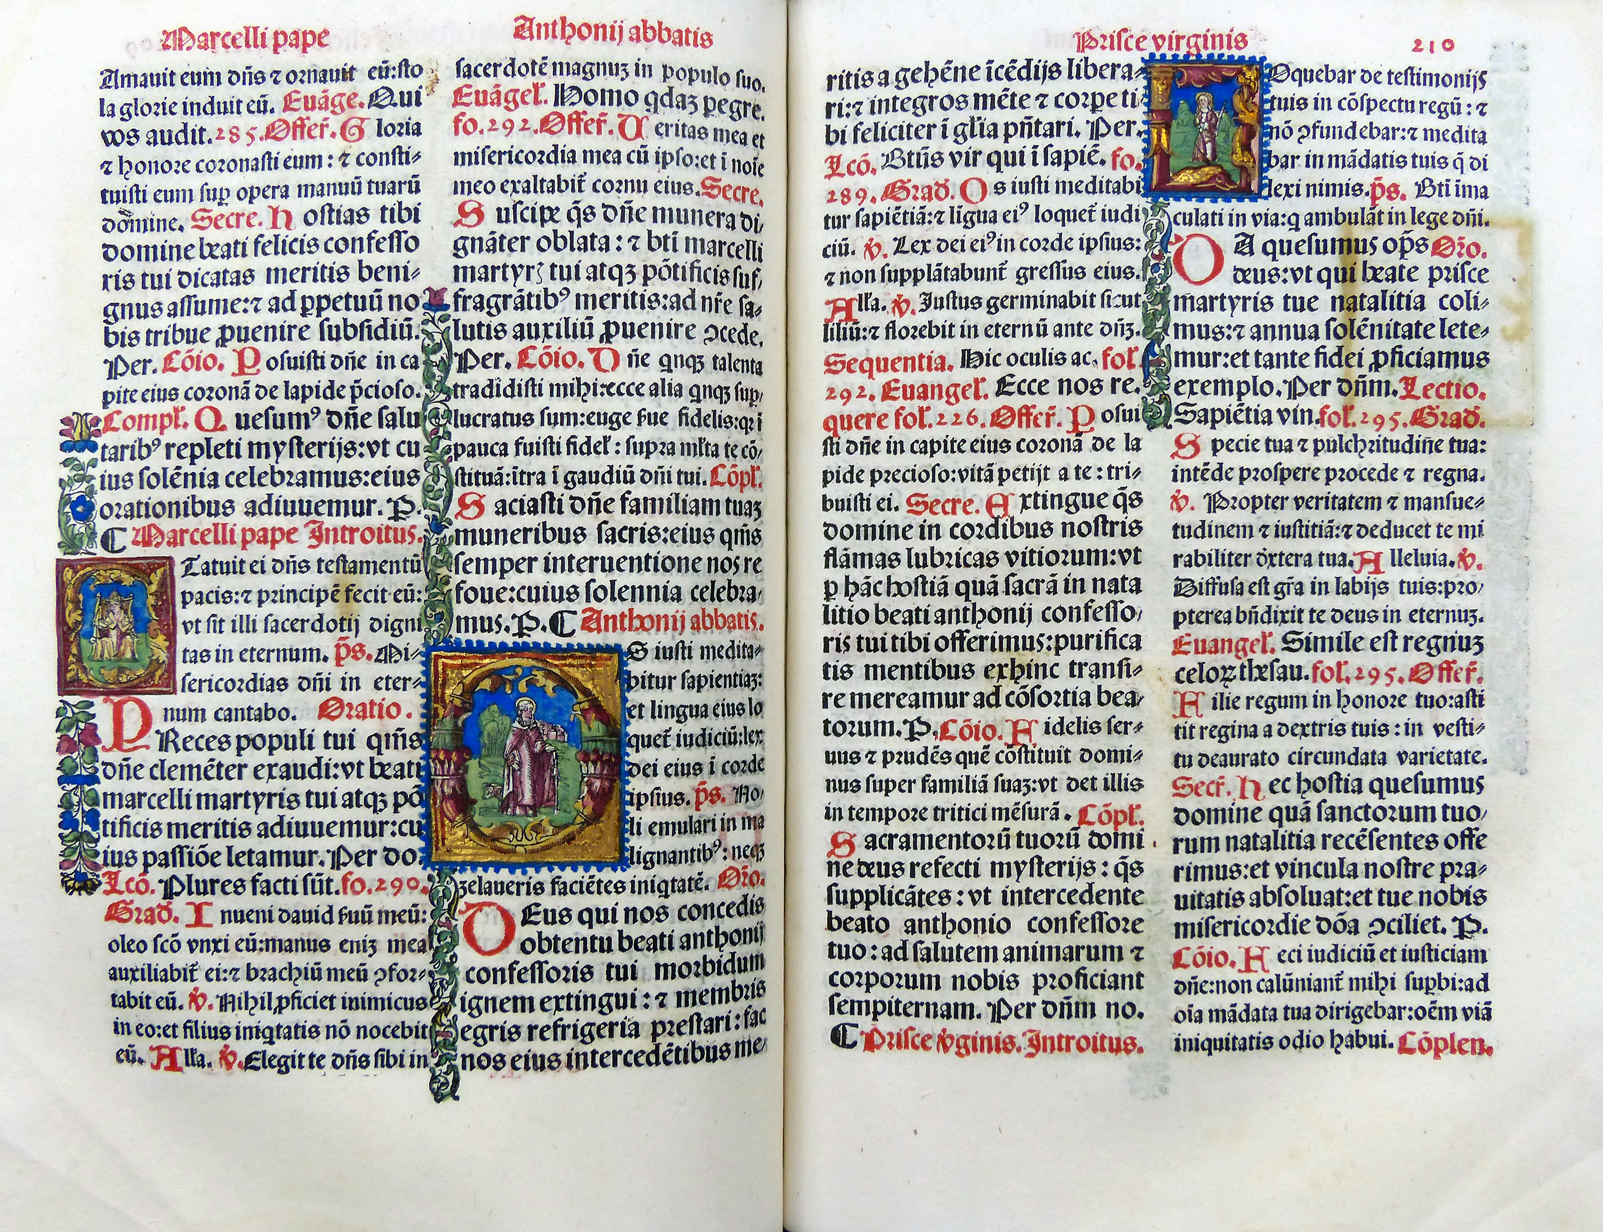 Marcelli pape
Anthonij abbatis
Amauit eum dñs ⁊ ornauit eū:sto
la glorie induit eū. Euāge. Qui
vos audit.285.Offer̄. G loria
⁊ honore coronasti eum: ⁊ consti⸗
tuisti eum suꝑ opera manuū tuarū
domine. Secre. H ostias tibi
domine beati felicis confesso
ris tui dicatas meritis beni⸗
gnus assume:⁊ ad ꝑpetuū no
bis tribue ꝓuenire subsidiū.
Per. Cōio. P osuisti dñe in ca
pite eius coronā de lapide p̄cioso.
Compl̄. Q uesumꝰ dñe salu
taribꝰ repleti mysterijs:vt cu
ius solēnia celebramus:eius
orationibus adiuuemur. P.
¶ Marcelli pape Introitus.
Tatuit ei dñs testamentū
pacis:⁊ principē fecit eū:
vt sit illi sacerdotij digni
tas in eternum. p̄s. Mi⸗
sericordias dñi in eter⸗
num cantabo. Oratio.
PReces populi tui qm̄s
dñe clemēter exaudi:vt beati
marcelli martyris tui atqꝫ pō
tificis meritis adiuuemur:cu
ius passiōe letamur. Per do.
Lcō. Plures facti sūt. fo.290.
Grad. I nueni dauid ẜuū meū:
oleo scō vnxi eū:manus enīꝫ mea
auxiliabit̄ ei:⁊ brachiū meū ꝯfor⸗
tabit eū. v̄. Nihil ꝓficiet inimicus
in eo:et filius iniqtatis nō nocebit
eū. Alla. v̄. Elegit te dñs sibi in
sacerdotē magnuꝫ in populo suo.
Euāgel̄. Homo qdaꝫ pegre.
fo.292.Offer̄. V eritas mea et
misericordia mea cū ipso:et ī noīe
meo exaltabit̄ cornu eius. Secre.
S uscipe q̄s dñe munera di⸗
gnāter oblata: ⁊ bt̄i marcelli
martyrꝭ tui atqꝫ pōtificis suf⸗
fragātibꝰ meritis:ad nr̄e sa⸗
lutis auxiliū ꝓuenire ꝯcede.
Per. Cōio. D ñe qnqꝫ talenta
tradidisti mihi:ecce alia qnqꝫ suꝑ
lucratus sum:euge ẜue fidelis:qꝛ ī
pauca fuisti fidel̄: supra ml̄ta te cō⸗
stituā:ītra ī gaudiū dñi tui. Cōpl̄.
S aciasti dñe familiam tuaꝫ
muneribus sacris:eius qm̄s
semper interuentione nos re
foue:cuius solennia celebra⸗
mus. P. ¶ Anthonij abbatis.
S iusti medita⸗
bitur sapientiaꝫ:
et lingua eius lo
quet̄ iudiciū:lex
dei eius ī corde
ipsius. p̄s. No⸗
li emulari in ma
lignantibꝰ: neqꝫ
zelaueris faciētes iniqtatē. Oro.
DEus qui nos concedis
obtentu beati anthonij
confessoris tui morbidum
ignem extingui: ⁊ membris
egris refrigeria prestari: fac
nos eius intercedētibus me⸗
Prisce virginis
210
ritis a gehēne īcēdijs libera⸗
ri:⁊ integros mēte ⁊ corpe ti
bi feliciter ī glīa pñtari. Per.
Lcō. Btūs vir qui ī sapiē. fo.
289. Grad. O s iusti meditabi
tur sapiētiā:⁊ ligua eiꝰ loquet̄ iudi
ciū. v̄. Lex dei eiꝰ in corde ipsius:
⁊ non supplātabunt̄ gressus eius.
Alla. v̄. Justus germinabit sicut
liliū:⁊ florebit in eternū ante dñꝫ.
Sequentia. Hic oculis ac. fol̄.
292. Euangel̄. Ecce nos re.
quere fol̄.226. Offer̄. P osui
sti dñe in capite eius coronā de la
pide precioso:vitā petijt a te: tri⸗
buisti ei. Secre. E xtingue q̄s
domine in cordibus nostris
flāmas lubricas vitiorum:vt
ꝑ hāc hostiā quā sacrā in nata
litio beati anthonij confesso⸗
ris tui tibi offerimus:purifica
tis mentibus exhinc transi⸗
re mereamur ad cōsortia bea⸗
torum. P. Cōio. F idelis ser⸗
uus ⁊ prudēs quē cōstituit domi⸗
nus super familiā suaꝫ:vt det illis
in tempore tritici mēsurā. Cōpl̄.
S acramentorū tuorū domi
ne deus refecti mysterijs: q̄s
supplicātes: vt intercedente
beato anthonio confessore
tuo: ad salutem animarum ⁊
corporum nobis proficiant
sempiternam. Per dñm no.
¶ Prisce v̄ginis. Introitus.
Oquebar de testimonijs
tuis in cōspectu regū: ⁊
nō ꝯfundebar:⁊ medita
bar in mādatis tuis q̄ di
lexi nimis. p̄s. Btī īma
culati in via:q ambulāt in lege dñi.
DA quesumus op̄s Oro.
deus:vt qui beate prisce
martyris tue natalitia coli⸗
mus:⁊ annua solēnitate lete⸗
mur:et tante fidei ꝓficiamus
exemplo. Per dñm. Lectio.
Sapiētia vin. fol.295. Grad.
S pecie tua ⁊ pulchritudine tua:
intēde prospere procede ⁊ regna.
v̄. Propter veritatem ⁊ mansue⸗
tudinem ⁊ iustitiā:⁊ deducet te mi
rabiliter dxtera tua. A lleluia. v̄.
Diffusa est gr̄a in labijs tuis:pro⸗
pterea bñdixit te deus in eternuꝫ.
Euangel̄. Simile est regnuꝫ
celoꝝ thesau. fol.295. Offer̄.
F ilie regum in honore tuo:asti
tit regina a dextris tuis: in vesti⸗
tu deaurato circundata varietate.
Secr̄. H ec hostia quesumus
domine quā sanctorum tuo⸗
rum natalitia recēsentes offe
rimus:et vincula nostre pra⸗
uitatis absoluat:et tue nobis
misericordie dōa ꝯciliet. P.
Cōio. F eci iudiciū et iusticiam
dñe:non calūniant̄ mihi suꝑbi:ad
oīa mādata tua dirigebar:oēm viā
iniquitatis odio habui. Cōplen.